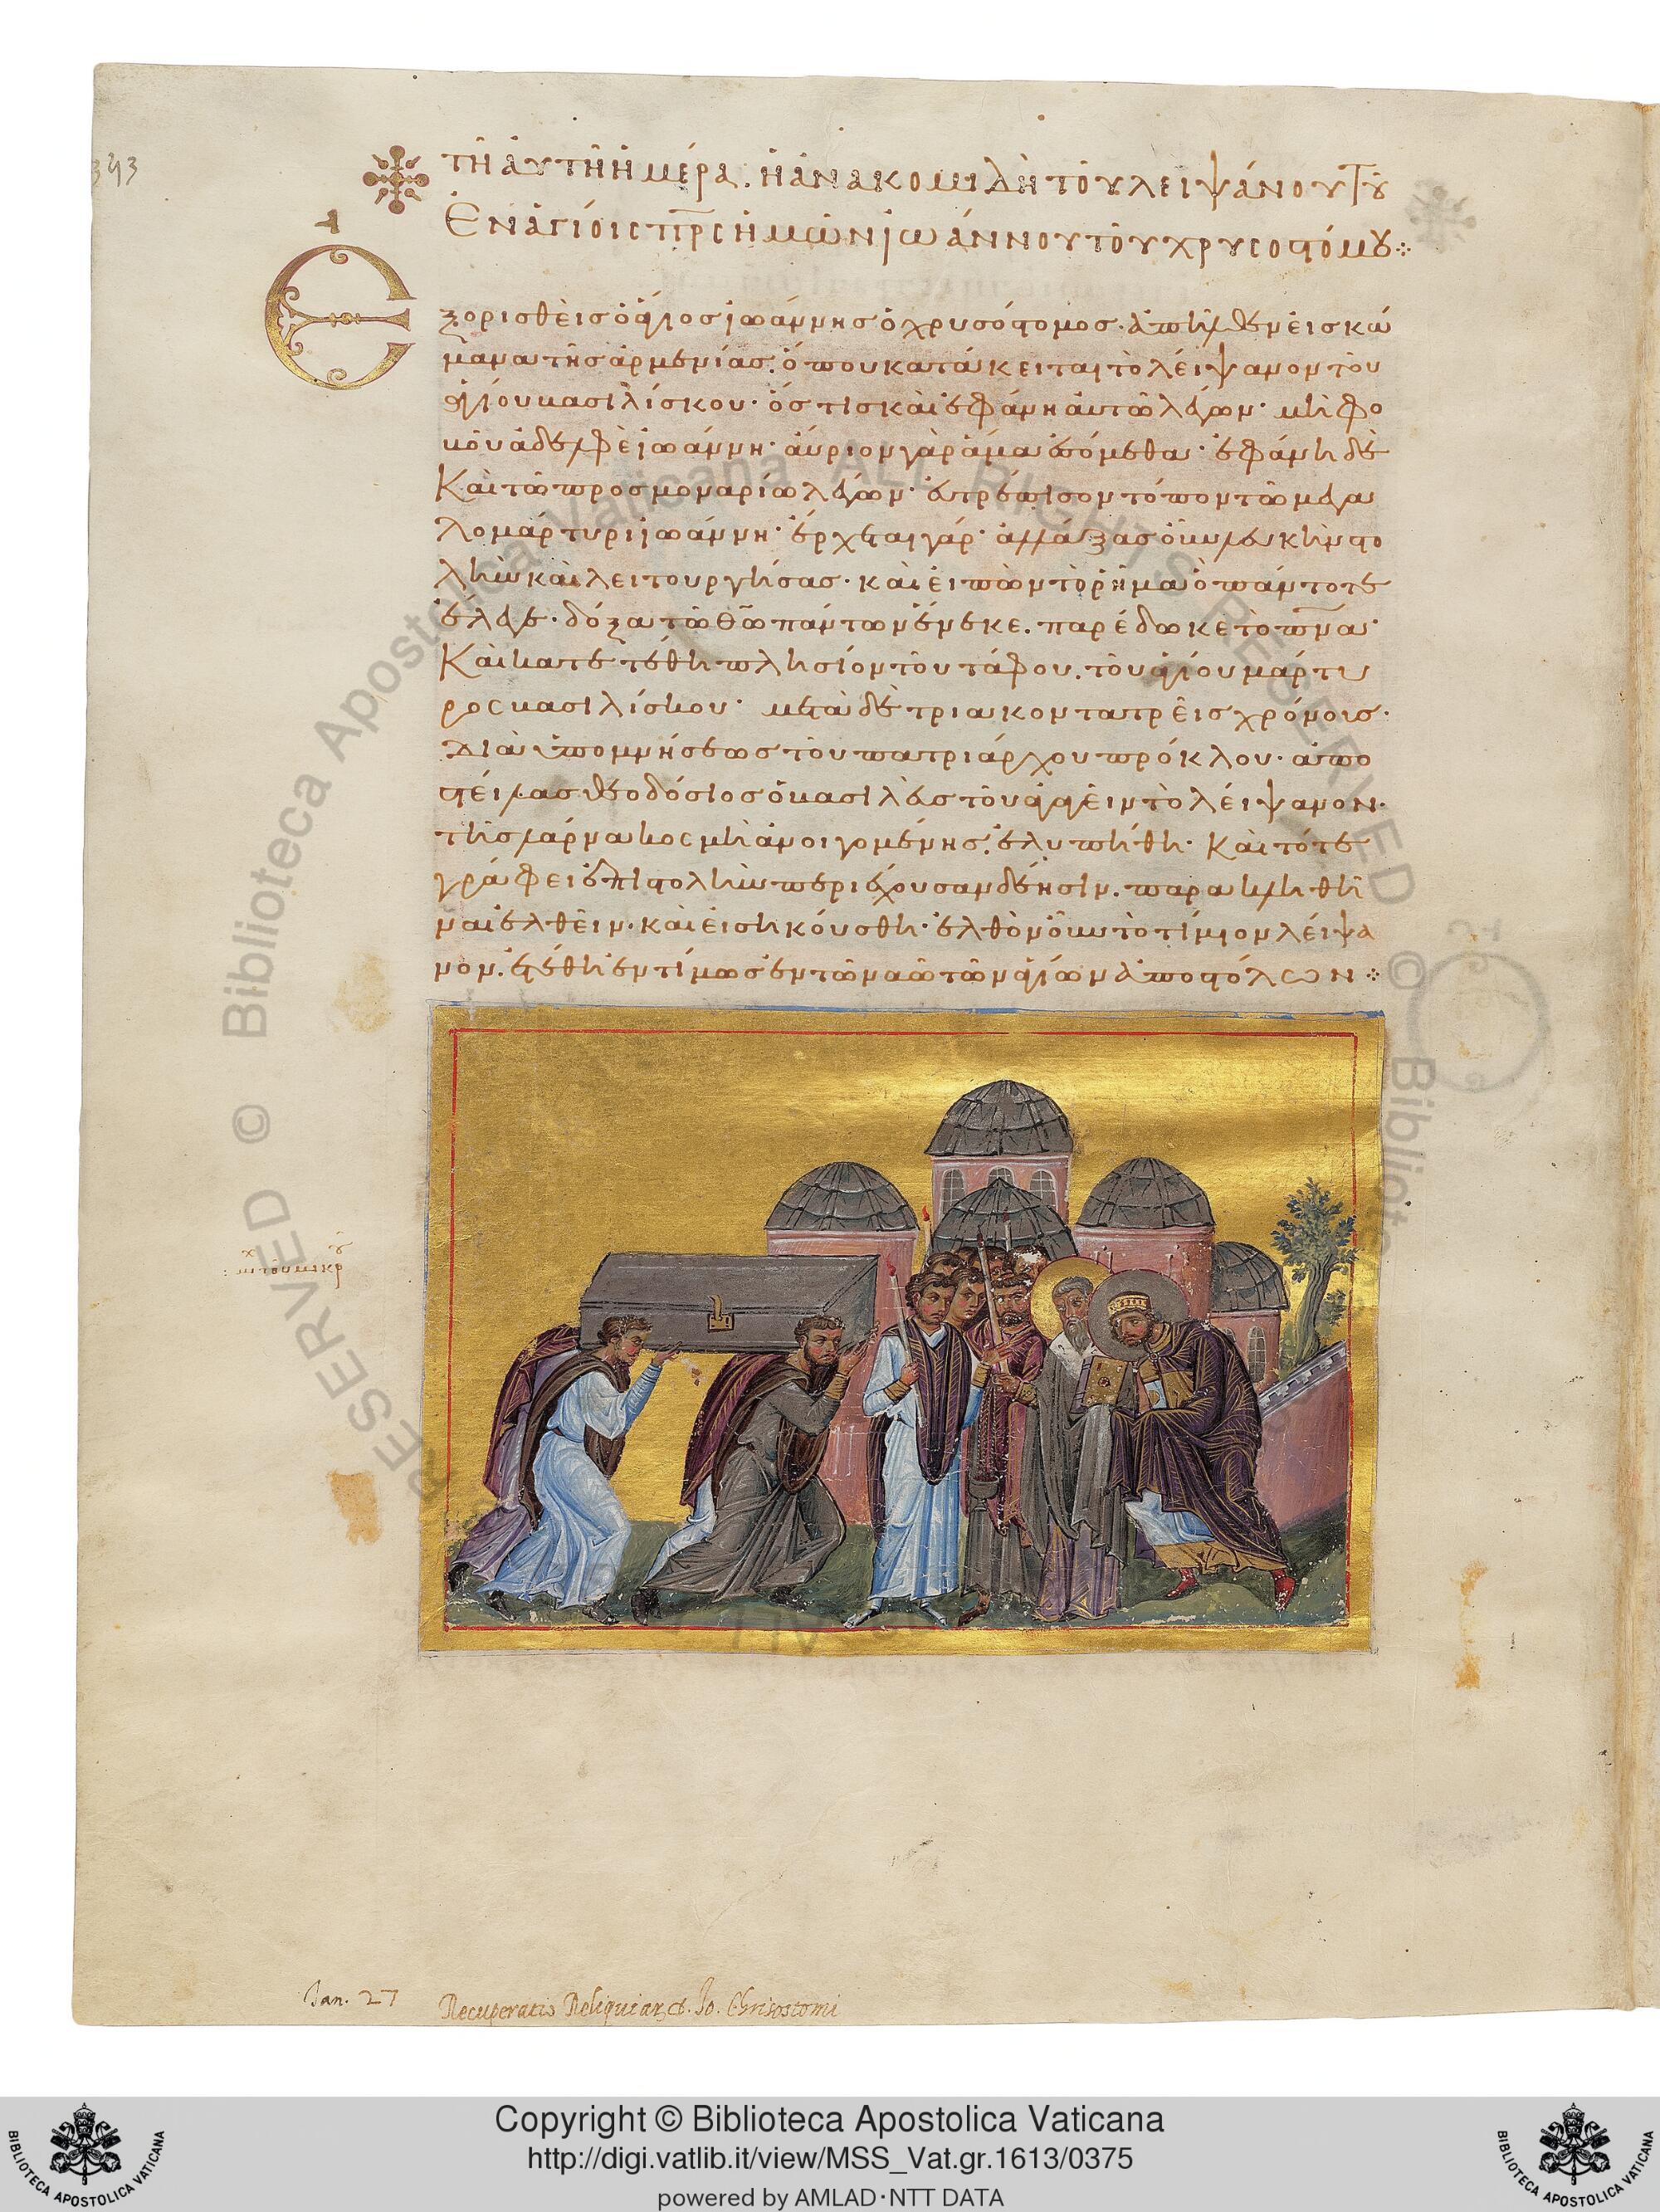 353
Τῆ αὐτῆ ἡμέρα. ἡ ἀνακομιδὴ τοῦ λειψάνου τοῦ
Ἐν ἁγίοις πρς ἡμῶν ἰωάννου τοῦ χρυσοστόμου
Ε
ξορισθεὶς ὁ ἅγιος ἰωάννης ὁ χρυσόστομος. ἀπῆλθεν εἰς κώ
μανα τῆς ἀρμενίας. ὅπου κατάκειται τὸ λείψανον τοῦ
ἁγίου βασιλίσκου. ὅστις καὶ ἐφάνη αὐτῶ λέγων. μὴ φο
βοῦ ἀδελφὲ ἰωάννη. αὔριον γὰρ ἅμα ἐσόμεθα. ἐφάνη δὲ
Καὶ τῶ προσμοναρίω λέγων. εὐτρέπισον τόπον τῶ μεγα
λομάρτυρι ἰωάννη. ἔρχεται γάρ. ἀλλάξας οὖν λευκὴν στο
λὴν καὶ λειτουργήσας. καὶ εἰπὼν τὸ ῥῆμα ὃ πάντοτε
ἔλεγε. δόξα τῶ θῶ πάντων ἕνεκε. παρέδωκε τὸ πνα.
Καὶ κατετέθη πλησίον τοῦ τάφου. τοῦ ἁγίου μάρτυ
ρος βασιλίσκου. μετὰ δὲ τριακοντατρεῖς χρόνους.
Διὰ ὑπομνήσεως τοῦ πατριάρχου πρόκλου. ἀπο
στείλας θεοδόσιος ὁ βασιλεὺς τοῦ ἀγαγεῖν τὸ λείψανον.
τῆς λάρνακος μὴ ἀνοιγομένης. ἐλυπήθη. Καὶ τότε
γράφει ἐπιστολὴν περιέχουσαν δέησιν. παρακληθῆ
ναι ἐλθεῖν. καὶ εἰσηκούσθη. ἐλθὸν οὖν τὸ τίμιον λείψα
νον. ἐτέθη ἐντίμως ἐν τῶ ναῶ τῶν ἁγίων ἀποστόλων
τοῦ μικρ
Jan. 27 Recuperatio Reliquiar. S. Jo. Chrisostomi
© Biblioteca Apostolica Vaticana ALL RIGHTS RESERVED © Bibliot
RESERVED
Copyright © Biblioteca Apostolica Vaticana
http://digi.vatlib.it/view/MSS_Vat.gr.1613/0375
powered by AMLAD·NTT DATA
BIBLIOTECA APOSTOLICA VATICANA
BIBLIOTECA APOSTOLICA VATICANA